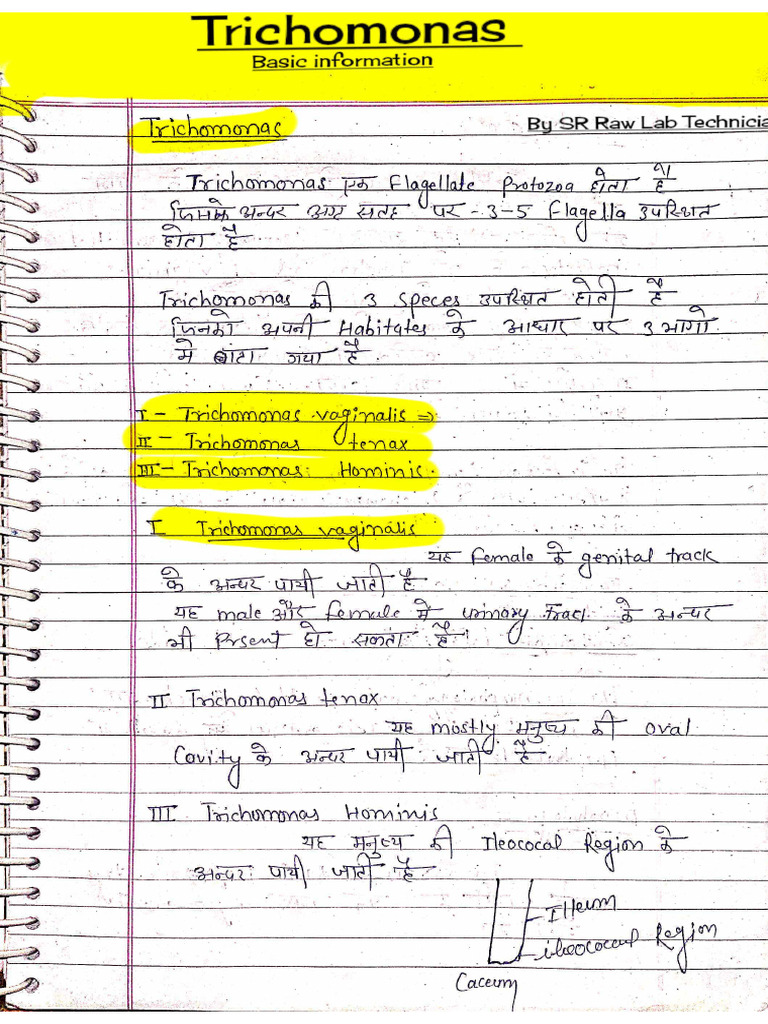 Trichomonas
Basic information
By SR Raw Lab Technicia
Trichomonas
Trichomonas एक Flagellate Protozoa होता है
जिसके अन्दर अग्र सतह पर - 3-5 Flagella उपस्थित
होता है
Trichomonas की 3 Speces उपस्थित होती है
जिनको अपनी Habitates के आधार पर 3 भागो
मे बांटा गया है
I - Trichomonas vaginalis ⇒
II - Trichomonas tenax
III - Trichomonas Hominis.
I Trichomonas vaginalis
यह female के genital track
के अन्दर पायी जाती है
यह male और female मे urinary Tract के अन्दर
भी Present हो सकता है।
II Trichomonas tenax
यह mostly मनुष्य की oval
Cavity के अन्दर पायी जाती है
III Trichomonas Hominis
यह मनुष्य की Ileococal Region के
अन्दर पायी जाती है
Illeum
ileococal Region
Caceum